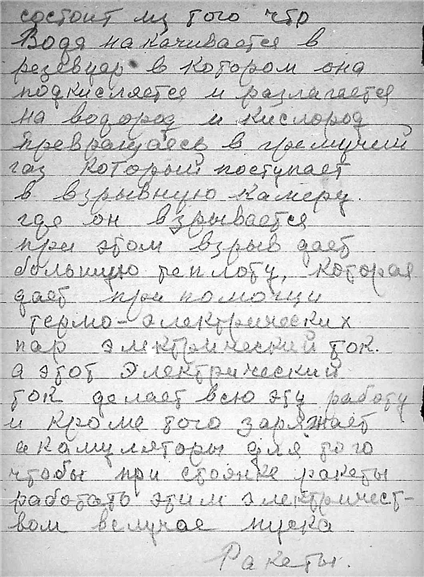 состоит из того что
Водя накачивается в
резевуер в котором она
подкисляется и разлагается
на водород и кислород
превращаясь в гремучий
газ который поступает
в взрывную камеру.
где он взрывается
при этом взрыв дает
большую теплоту, которая
дает при помощи
термо-электрических
пар электрический ток.
а этот электрический
ток делает всю эту работу
и кроме того заряжает
акамуляторы для того
чтобы при стоянке ракеты
работать этим электричест-
вом вслучае пуска
Ракеты.